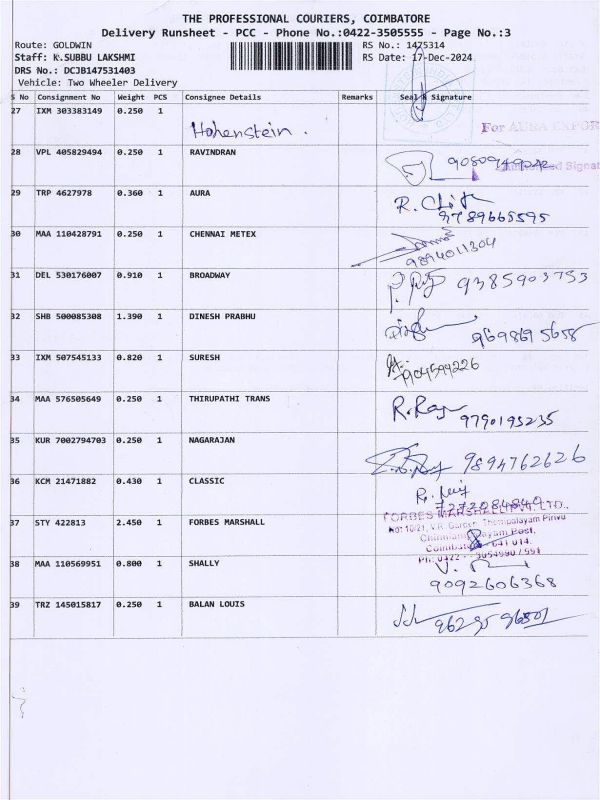 THE PROFESSIONAL COURIERS, COIMBATORE
Delivery Runsheet - PCC - Phone No.:0422-3505555 - Page No.:3
Route: GOLDWIN RS No.: 1475314
Staff: K.SUBBU LAKSHMI RS Date: 17-Dec-2024
DRS No.: DCJB147531403
Vehicle: Two Wheeler Delivery
S No Consignment No Weight PCS Consignee Details Remarks Seal & Signature
27 IXM 303383149 0.250 1
Hohenstein. For AURA EXPOR
28 VPL 405829494 0.250 1 RAVINDRAN
Signat
29 TRP 4627978 0.360 1 AURA
9789665595
30 MAA 110428791 0.250 1 CHENNAI METEX
9894011304
31 DEL 530176007 0.910 1 BROADWAY
9385903753
32 SHB 500085308 1.390 1 DINESH PRABHU
9698695658
33 IXM 507545133 0.820 1 SURESH
34 MAA 576505649 0.250 1 THIRUPATHI TRANS
9790193235
35 KUR 7002794703 0.250 1 NAGARAJAN
9894762626
36 KCM 21471882 0.430 1 CLASSIC
37 STY 422813 2.450 1 FORBES MARSHALL
FORBES MARSHALL PVT. LTD.,
38 MAA 110569951 0.800 1 SHALLY
9092606368
39 TRZ 145015817 0.250 1 BALAN LOUIS